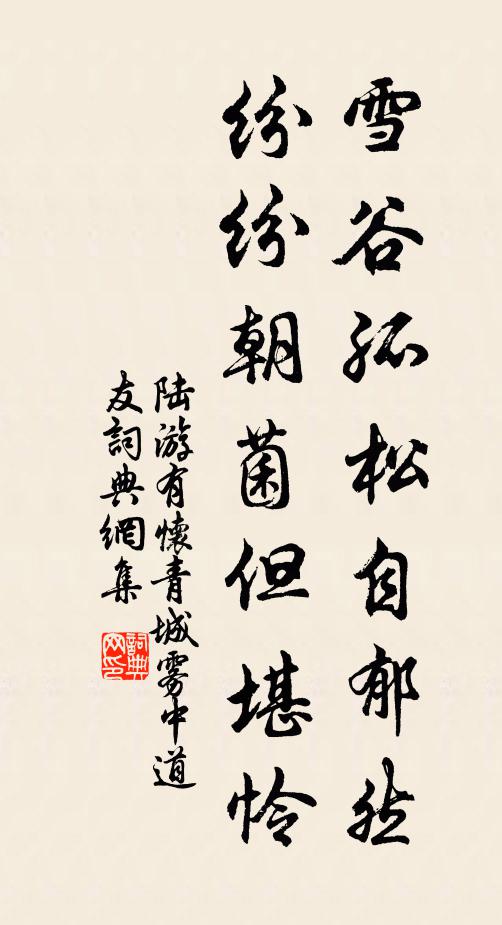 雪谷孤松自郁然
纷纷朝菌但堪怜
陆游有懷青城雾中道
友詞典網集
詞典網印